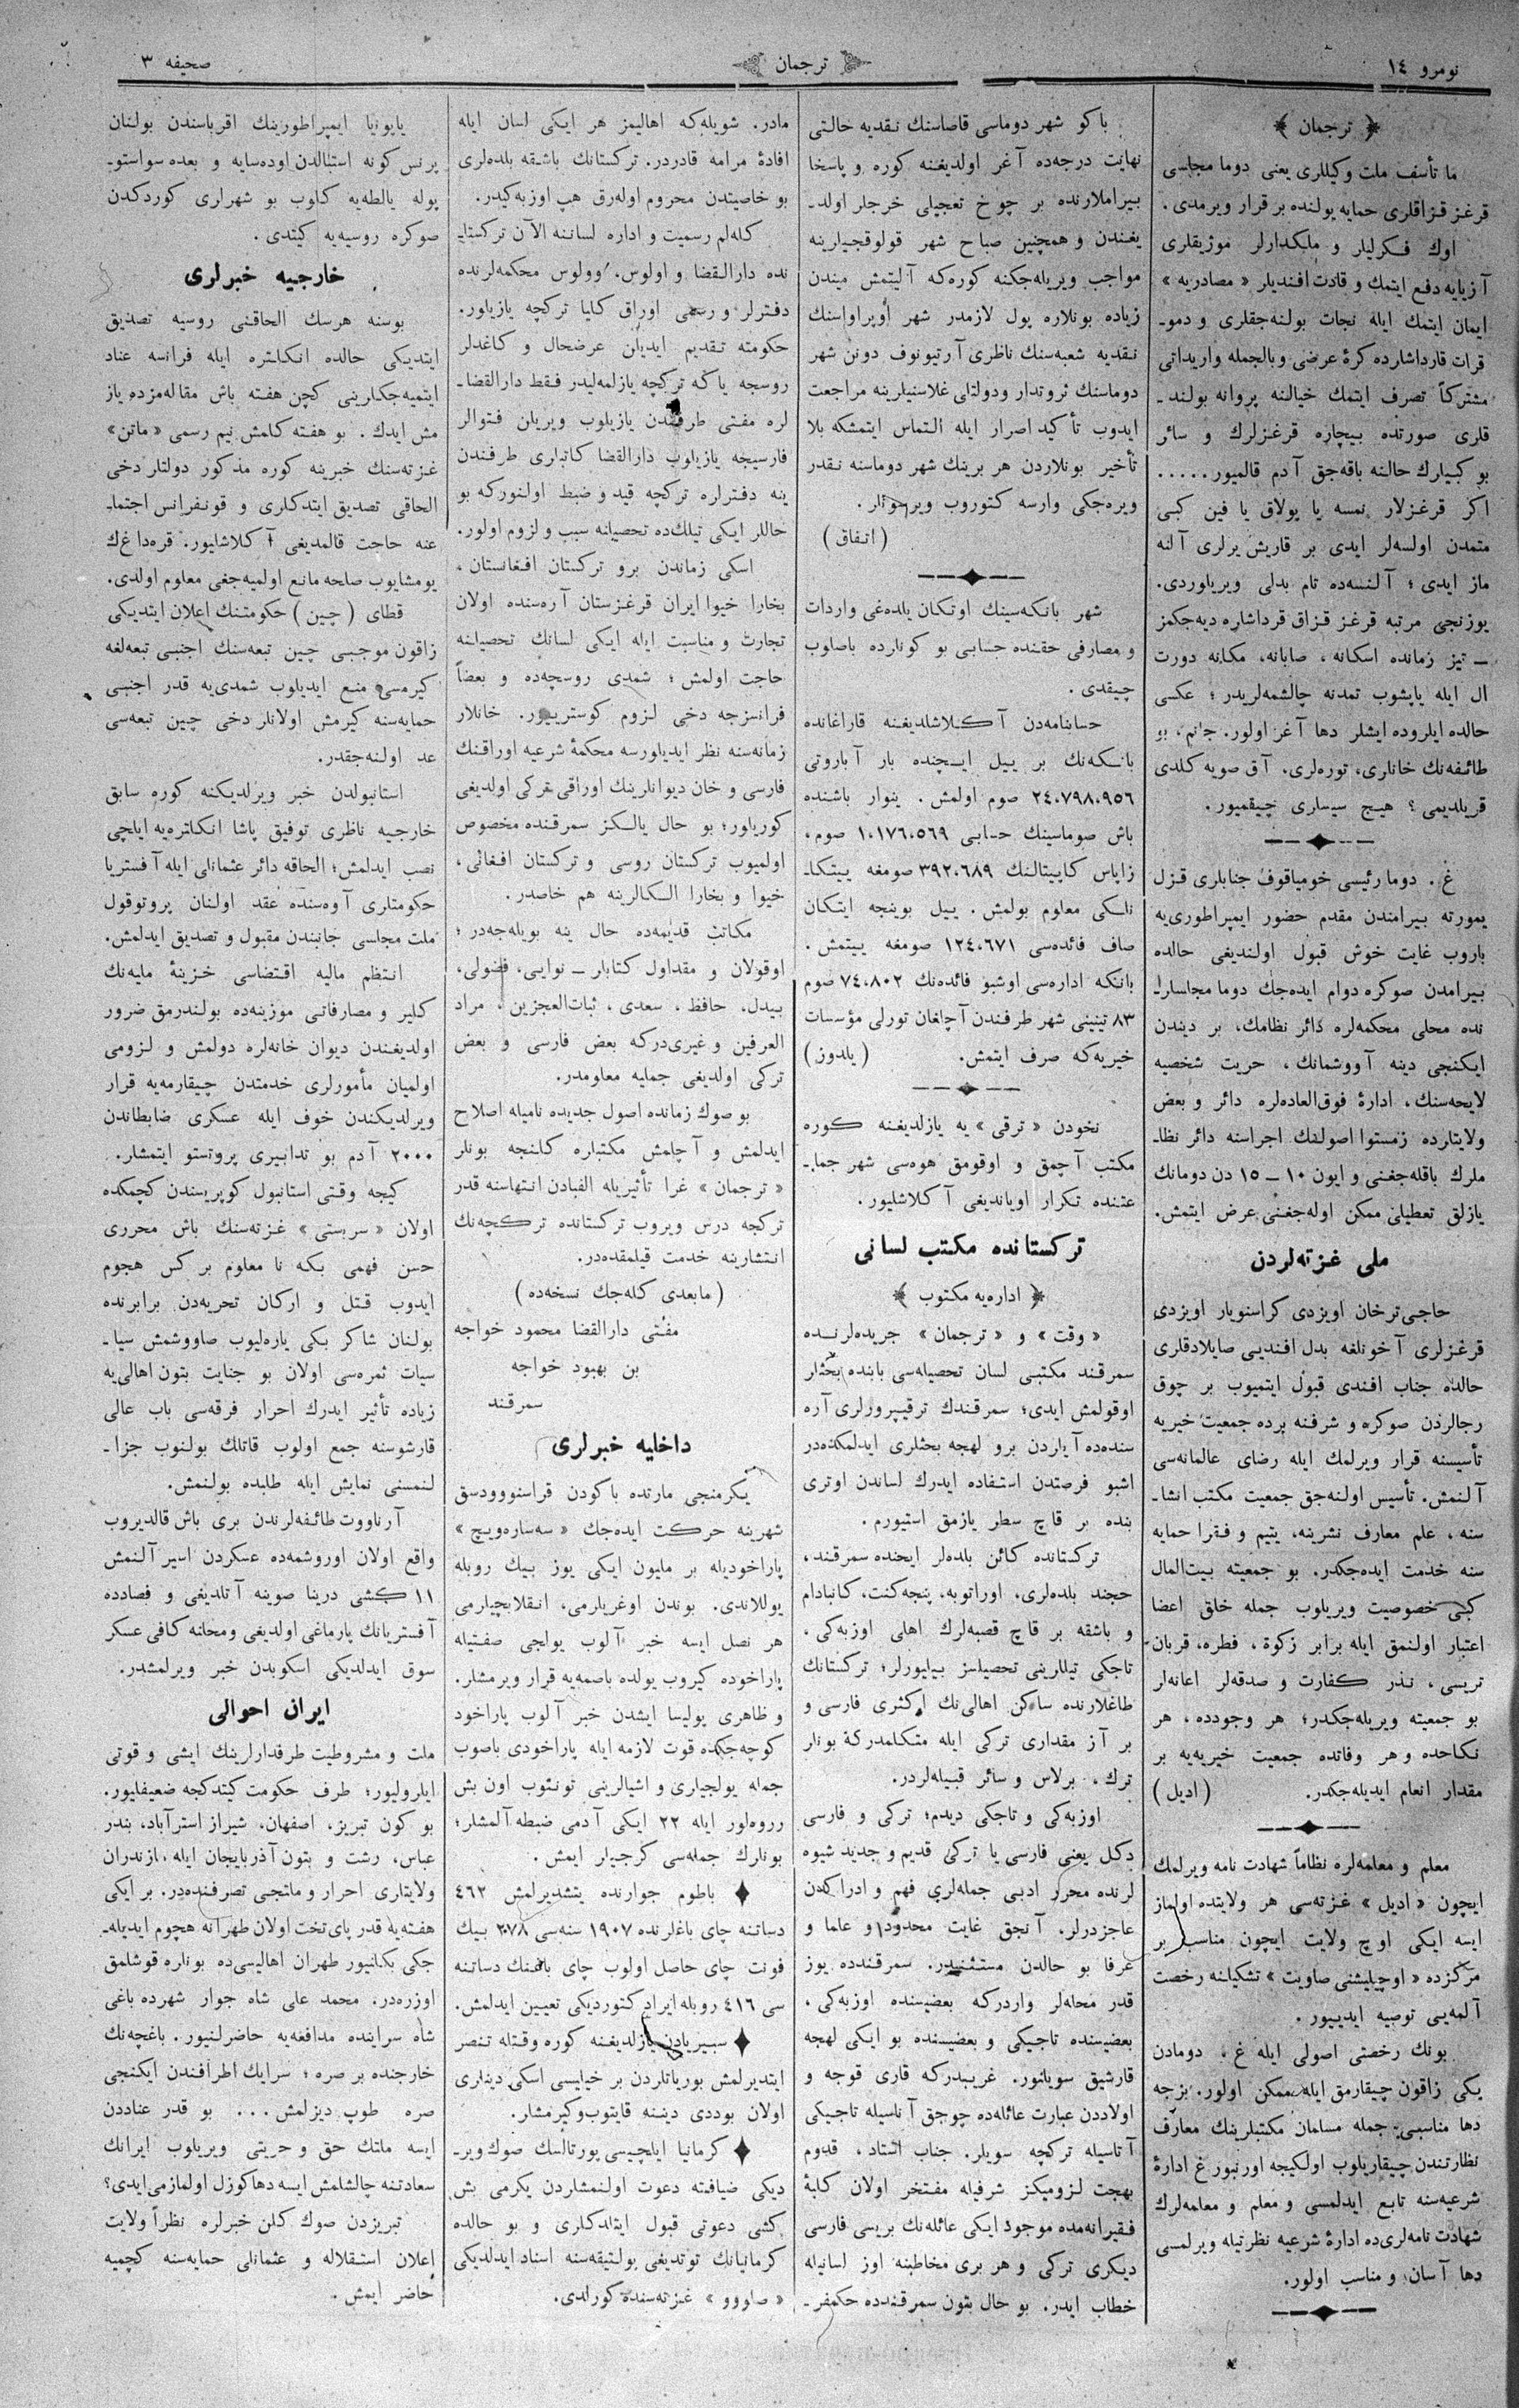 نومرو ١٤
﴿ ترجمان ﴾
صحيفه ٣
﴿ ترجمان ﴾
ما تأسف ملت وكيللرى يعنى دوما مجلسى
قرغز قزاقلرى حمايه يولنده بر قرار ويرمدى.
اوك فكرليلر و ملكدارلر موژيقلرى
آزيايه دفع ايتمك و قادت افنديلر « مصادريه »
ايمان ايتمك ايله نجات بولنه‌جقلرى و دمو‌ـ
قرات قارداشلرده كرۀ عرضى وبالجمله وارىداتى
مشتركاً تصرف ايتمك خيالنه پروانه بولند ـ
قلرى صورتده بيچاره قرغزلرك و سائر
بو كبيلرك حالنه باقه‌جق آدم قالميور.....
اكر قرغزلار نمسه يا پولاق يا فين كبى
متمدن اولسه‌لر ايدى بر قاريش يرلرى آلنه
ماز ايدى ؛ آلنسه‌ده تام بدلى ويريلوردى.
يوزنجى مرتبه قرغز قزاق قرداشلره ديه‌جكمز
ـ تيز زمانده اسكانه ، صابانه، مكانه دورت
ال ايله ياپشوب تمدنه چالشمه‌ليدر ؛ عكسى
حالده ايلروده ايشلر دها آغر اولور. جانم، بو
طائفه‌نك خانلرى، توره‌لرى، آق صويه كلدى
قريلديمى ؟ هيچ سيسلرى چيقميور.
غ. دوما رئيسى خومياقوف جنابلرى قزل
يمورته بيرامندن مقدم حضور ايمپراطورى‌يه
باروب غايت خوش قبول اولنديغى حالده
بيرامدن صوكره دوام ايده‌جك دوما مجلسلرا‌ـ
نده محلى محكمه‌لره دائر نظامك، بر ديندن
ايكنجى دينه آووشمانك، حريت شخصيه
لايحه‌سنك، ادارۀ فوق‌العاده‌لره دائر وبعض
ولايتلرده زمستوا اصولنك اجراسنه دائر نظا‌ـ
ملرك باقله‌جغنى و ايون ١٠ ـ ١٥ دن دومانك
يازلق تعطيلى ممكن اوله‌جغنى عرض ايتمش.
ملى غزته‌لردن
حاجى‌ترخان اويزدى كراسنويار اويزدى
قرغزلرى آخونلغه بدل افنديى صايلادقلرى
حالده جناب افندى قبول ايتميوب بر چوق
رجالردن صوكره و شرفنه برده جمعيت خيريه
تأسيسنه قرار ويرلمك ايله رضاى عالمانه‌سى
آلنمش. تأسيس اولنه‌جق جمعيت مكتب انشا‌ـ
سنه، علم معارف نشرينه، يتيم و فقرا حمايه
سنه خدمت ايده‌جكدر. بو جمعيته بيت‌المال
كبى خصوصيت ويريلوب جمله خلق اعضا
اعتبار اولنمق ايله برابر زكوة، فطره، قربان
تريسى ، نذر كفارت و صدقه‌لر اعانه‌لر
بو جمعيته ويريله‌جكدر؛ هر وجودده، هر
نكاحده و هر وفاتده جمعيت خيريه‌يه بر
مقدار انعام ايديله‌جكدر. (اديل)
معلم و معلمه‌لره نظاماً شهادت نامه ويرلمك
ايچون « اديل » غزته‌سى هر ولايتده اولماز
ايسه ايكى اوچ ولايت ايچون مناسب بر
مركزده « اوچيليشنى صاويت » تشكيلنه رخصت
آلمه‌يى توصيه ايدييور.
بونك رخصتى اصولى ايله غ. دومادن
يكى زاقون چيقارمق ايله ممكن اولور. بزجه
دها مناسبى: جمله مسلمان مكتبلرينك معارف
نظارتندن چيقاريلوب اولكيجه اورنبورغ ادارۀ
شرعيه‌سنه تابع ايدلمسى و معلم و معلمه‌لرك
شهادت نامه‌لرى‌ده ادارۀ شرعيه نظرتيله ويرلمسى
دها آسان و مناسب اولور.
باكو شهر دوماسى قاصاسنك نقديه حالتى
نهايت درجه‌ده آغر اولديغنه كوره و پاسخا
بيراملارنده بر چوخ تعجيلى خرجلر اولد‌ـ
يغندن و همچنين صباح شهر قولوقچيلرينه
مواجب ويريله‌جكنه كوره‌كه آليتمش ميندن
زياده بونلاره پول لازمدر شهر اوپراواسنك
نقديه شعبه‌سنك ناظرى آرتيونوف دونن شهر
دوماسنك ثروتدار ودولتلى غلاسنيلرينه مراجعت
ايدوب تأكيد اصرار ايله التماس ايتمشكه بلا
تأخير بونلاردن هر برينك شهر دوماسنه نقدر
ويره‌جكى وارسه كتوروب ويرسونلر.
(اتفاق)
شهر بانكه‌سينك اوتكان يلده‌غى واردات
و مصارفى حقنده حسابى بو كونارده باصلوب
چيقدى.
حسابنامه‌دن آكلاشلديغنه قاراغانده
بانكه‌نك بر ييل ايچنده بار آباروتى
٢٤،٧٩٨،٩٥٦ صوم اولمش. ينوار باشنده
باش صوماسينك حسابى ١،١٧٦،٥٦٩ صوم،
زاپاس كاپيتالنك ٣٩٢،٦٨٩ صومغه ييتكا‌ـ
نلكى معلوم بولمش. ييل بوينجه ايتكان
صاف فائده‌سى ١٢٤،٦٧١ صومغه ييتمش.
بانكه اداره‌سى اوشبو فائده‌نك ٧٤،٨٠٢ صوم
٨٣ تينينى شهر طرفندن آچلغان تورلى مؤسسات
خيريه‌كه صرف ايتمش. (يلدوز)
نخودن « ترقى » يه يازلديغنه كوره
مكتب آچمق و اوقومق هوه‌سى شهر جما‌ـ
عتنده تكرار اوياندیغى آكلاشليور.
تركستانده مكتب لسانى
﴿ اداره‌يه مكتوب ﴾
« وقت » و « ترجمان » جريده‌لرنده
سمرقند مكتبى لسان تحصيله‌سى بابنده بحثلر
اوقولمش ايدى؛ سمرقندك ترقيپرورلرى آره
سنده‌ده آياردن برو لهجه بحثلرى ايدلمكده‌در
اشبو فرصتدن استفاده ايدرك لساندن اوترى
بنده بر قاچ سطر يازمق استيورم.
تركستانده كائن بلده‌لر ايچنده سمرقند،
خجند بلده‌لرى، اوراتوبه، پنجه‌كنت، كانبادام
و باشقه بر قاچ قصبه‌لرك اهلى اوزبه‌كى،
تاجكى تيللرينى تحصيلسز بيليورلر؛ تركستانك
طاغلارنده ساكن اهالى‌نك اكثرى فارسى و
بر آز مقدارى تركى ايله متكلمدركه بونلر
ترك، برلاس و سائر قبيله‌لردر.
اوزبه‌كى و تاجكى ديدم؛ تركى و فارسى
دكل يعنى فارسى يا تركى قديم و جديد شيوه
لرنده محرر ادبى جمله‌لرى فهم و ادراكدن
عاجزدرلر. آنجق غايت محدود و علما و
عرفا بو حالدن مستثنيدر. سمرقندده يوز
قدر محله‌لر واردركه بعضيسنده اوزبه‌كى،
بعضيسنده تاجيكى و بعضيسنده بو ايكى لهجه
قارشيق سويلنور. غريبدركه قارى قوجه و
اولاددن عبارت عائله‌ده چوجق آناسيله تاجيكى
آتاسيله تركچه سويلر. جناب استاد، قدوم
بهجت لزوميكز شرفيله مفتخر اولان كلبۀ
فقيرانه‌مده موجود ايكى عائله‌نك بريسى فارسى
ديكرى تركى و هر برى مخاطبنه اوز لسانيله
خطاب ايدر. بو حال بتون سمرقندده حكمفر‌ـ
مادر. شويله‌كه اهاليمز هر ايكى لسان ايله
افادۀ مرامه قادردر. تركستانك باشقه بلده‌لرى
بو خاصيتدن محروم اوله‌رق هپ اوزبه‌كيدر.
كله‌لم رسميت و اداره لساننه الآن تركستا‌ـ
نده دارالقضا و اولوس. وولوس محكمه‌لرنده
دفترلر و رسمى اوراق كليا تركچه يازيلور.
حكومته تقديم ايديلن عرضحال و كاغدلر
روسجه ياكه تركچه يازلمه‌ليدر فقط دارالقضا‌ـ
لره مفتى طرفندن يازيلوب ويريلن فتوالر
فارسيجه يازيلوب دارالقضا كاتبلرى طرفندن
ينه دفترلره تركچه قيد و ضبط اولنوركه بو
حاللر ايكى تيلك‌ده تحصيلنه سبب و لزوم اولور.
اسكى زماندن برو تركستان افغانستان،
بخارا خيوا ايران قرغزستان آره‌سنده اولان
تجارت و مناسبت ايله ايكى لسانك تحصيلنه
حاجت اولمش ؛ شمدى روسچه‌ده و بعضاً
فرانسزجه دخى لزوم كوستريور. خانلار
زمانه‌سنه نظر ايديلورسه محكمۀ شرعيه اوراقنك
فارسى و خان ديوانلرينك اوراقى تركى اولديغى
كوريلور؛ بو حال يالكز سمرقنده مخصوص
اولميوب تركستان روسى و تركستان افغانى،
خيوا و بخارا الكالرينه هم خاصدر.
مكاتب قديمه‌ده حال ينه بويله‌جه‌در ؛
اوقولان و مقداول كتابلر ـ نوايى، فضولى،
بيدل، حافظ، سعدى، ثبات‌العجزين، مراد
العرفين و غيرى‌دركه بعض فارسى و بعض
تركى اولديغى جمليه معلومدر.
بو صوك زمانده اصول جديده ناميله اصلاح
ايدلمش و آچلمش مكتبلره كلنجه بونلر
« ترجمان » غرا تأثيريله الفبادن انتهاسنه قدر
تركچه درس ويروب تركستانده تركچه‌نك
انتشارينه خدمت قيلمقده‌در.
(مابعدى كله‌جك نسخه‌ده)
مفتى دارالقضا محمود خواجه
بن بهبود خواجه
سمرقند
داخليه خبرلرى
يكرمنجى مارتده باكودن قراسنووودسق
شهرينه حركت ايده‌جك « سه‌ساره‌ويچ »
پاراخوديله بر مليون ايكى يوز بيك روبله
يوللاندى. بوندن اوغريلرمى، انقلابچيلرمى
هر نصل ايسه خبر آلوب يولجى صفتيله
پاراخوده كيروب يولده باصمه‌يه قرار ويرمشلر.
و ظاهرى پوليسا ايشدن خبر آلوب پاراخود
كوچه‌جكده قوت لازمه ايله پاراخودى باصوب
جمله يولجيلرى و اشيالرينى تونتوب اون بش
رروه‌لور ايله ٢٢ ايكى آدمى ضبطه آلمشلر؛
بونلرك جمله‌سى كرجيلر ايمش.
✦ باطوم جوارنده يتشديرلمش ٤٦٢
دساتنه چاى باغلرنده ١٩٠٧ سنه‌سى ٣٧٨ بيك
فونت چاى حاصل اولوب چاى باغينك دساتنه
سى ٤١٦ روبله ايراد كتورديكى تعيين ايدلمش.
✦ سبيريادن يازلديغنه كوره وقتله تنصر
ايتديرلمش بورياتلردن بر خيليسى اسكى دينلرى
اولان بوددى ديننه قايتوب كيرمشلر.
✦ كرمانيا ايلچيسى پورتالسك صوك وير‌ـ
ديكى ضيافته دعوت اولنمشلردن يكرمى بش
كشى دعوتى قبول ايتمدكلرى و بو حالده
كرمانيانك توتديغى پولتيقه‌سنه اسناد ايدلديكى
« صلووو » غزته‌سنده كورلدى.
ياپونيا ايمپراطورينك اقرباسندن بولنان
پرنس كونه استنبالدن اوده‌سايه و بعده سواستو‌ـ
پوله يالطه‌يه كلوب بو شهرلرى كوردكدن
صوكره روسيه‌يه كيتدى.
خارجيه خبرلرى
بوسنه هرسك الحاقنى روسيه تصديق
ايتديكى حالده انكلتره ايله فرانسه عناد
ايتميه‌جكلرينى كچن هفته باش مقاله‌مزده ياز
مش ايدك. بو هفته كلمش نيم رسمى « ماتن»
غزته‌سنك خبرينه كوره مذكور دولتلر دخى
الحاقى تصديق ايتدكلرى و قونفرانس اجتما‌ـ
عنه حاجت قالمديغى آكلاشليور. قره‌داغ‌ك
يومشايوب صلحه مانع اولميه‌جغى معلوم اولدى.
قطاى (چين) حكومتنك اعلان ايتديكى
زاقون موجبى چين تبعه‌سنك اجنبى تبعه‌لغه
كيرمسى منع ايديلوب شمدى‌يه قدر اجنبى
حمايه‌سنه كيرمش اولانلر دخى چين تبعه‌سى
عد اولنه‌جقدر.
استانبولدن خبر ويرلديكنه كوره سابق
خارجيه ناظرى توفيق پاشا انكلتره‌يه ايلچى
نصب ايدلمش؛ الحاقه دائر عثمانلى ايله آفستريا
حكومتلرى آره‌سنده عقد اولنان پروتوقول
ملت مجلسى جانبندن مقبول و تصديق ايدلمش.
انتظم ماليه اقتضاسى خزينۀ مليه‌نك
كلير و مصارفاتى موزينه‌ده بولندرمق ضرور
اولديغندن ديوان خانه‌لره دولمش و لزومى
اولميان مأمورلرى خدمتدن چيقارمه‌يه قرار
ويرلديكندن خوف ايله عسكرى ضابطاندن
٢٠٠٠ آدم بو تدابيرى پروتستو ايتمشلر.
كيجه وقتى استانبول كوپريسندن كچمكده
اولان « سربستى » غزته‌سنك باش محررى
حسن فهمى بكه نا معلوم بر كس هجوم
ايدوب قتل و اركان تحريه‌دن برابرنده
بولنان شاكر بكى ياره‌ليوب صاووشمش سيا‌ـ
سيات ثمره‌سى اولان بو جنايت بتون اهالى‌يه
زياده تأثير ايدرك احرار فرقه‌سى باب عالى
قارشوسنه جمع اولوب قاتلك بولنوب جزا‌ـ
لنمسنى نمايش ايله طلبده بولنمش.
آرناووت طائفه‌لرندن برى باش قالديروب
واقع اولان اوروشمه‌ده عسكردن اسير آلنمش
١١ كشى درينا صوينه آتلديغى و فصادده
آفستريانك پارماغى اولديغى و محلنه كافى عسكر
سوق ايدلديكى اسكوبدن خبر ويرلمشدر.
ايران احوالى
ملت و مشروطيت طرفدارلرينك ايشى و قوتى
ايلروليور؛ طرف حكومت كيتدكجه ضعيفليور.
بو كون تبريز، اصفهان، شيراز استرآباد، بندر
عباس، رشت و بتون آذربايجان ايله مازندران
ولايتلرى احرار و ملتجى تصرفنده‌در. بر ايكى
هفته‌يه قدر پاى‌تخت اولان طهرانه هجوم ايديله‌ـ
جكى بكلنيور طهران اهاليسى‌ده بونلره قوشلمق
اوزره‌در. محمد على شاه جوار شهرده باغى
شاه سراينده مدافعه‌يه حاضرلنيور. باغچه‌نك
خارجنده بر صره ؛ سرايك اطرافندن ايكنجى
صره طوپ ديزلمش... بو قدر عناددن
ايسه ملتك حق و حريتى ويريلوب ايرانك
سعادتنه چالشلمش ايسه دها كوزل اولمازمى ايدى؟
تبريزدن صوك كلن خبرلره نظراً ولايت
اعلان استقلاله و عثمانلى حمايه‌سنه كچميه
حاضر ايمش.